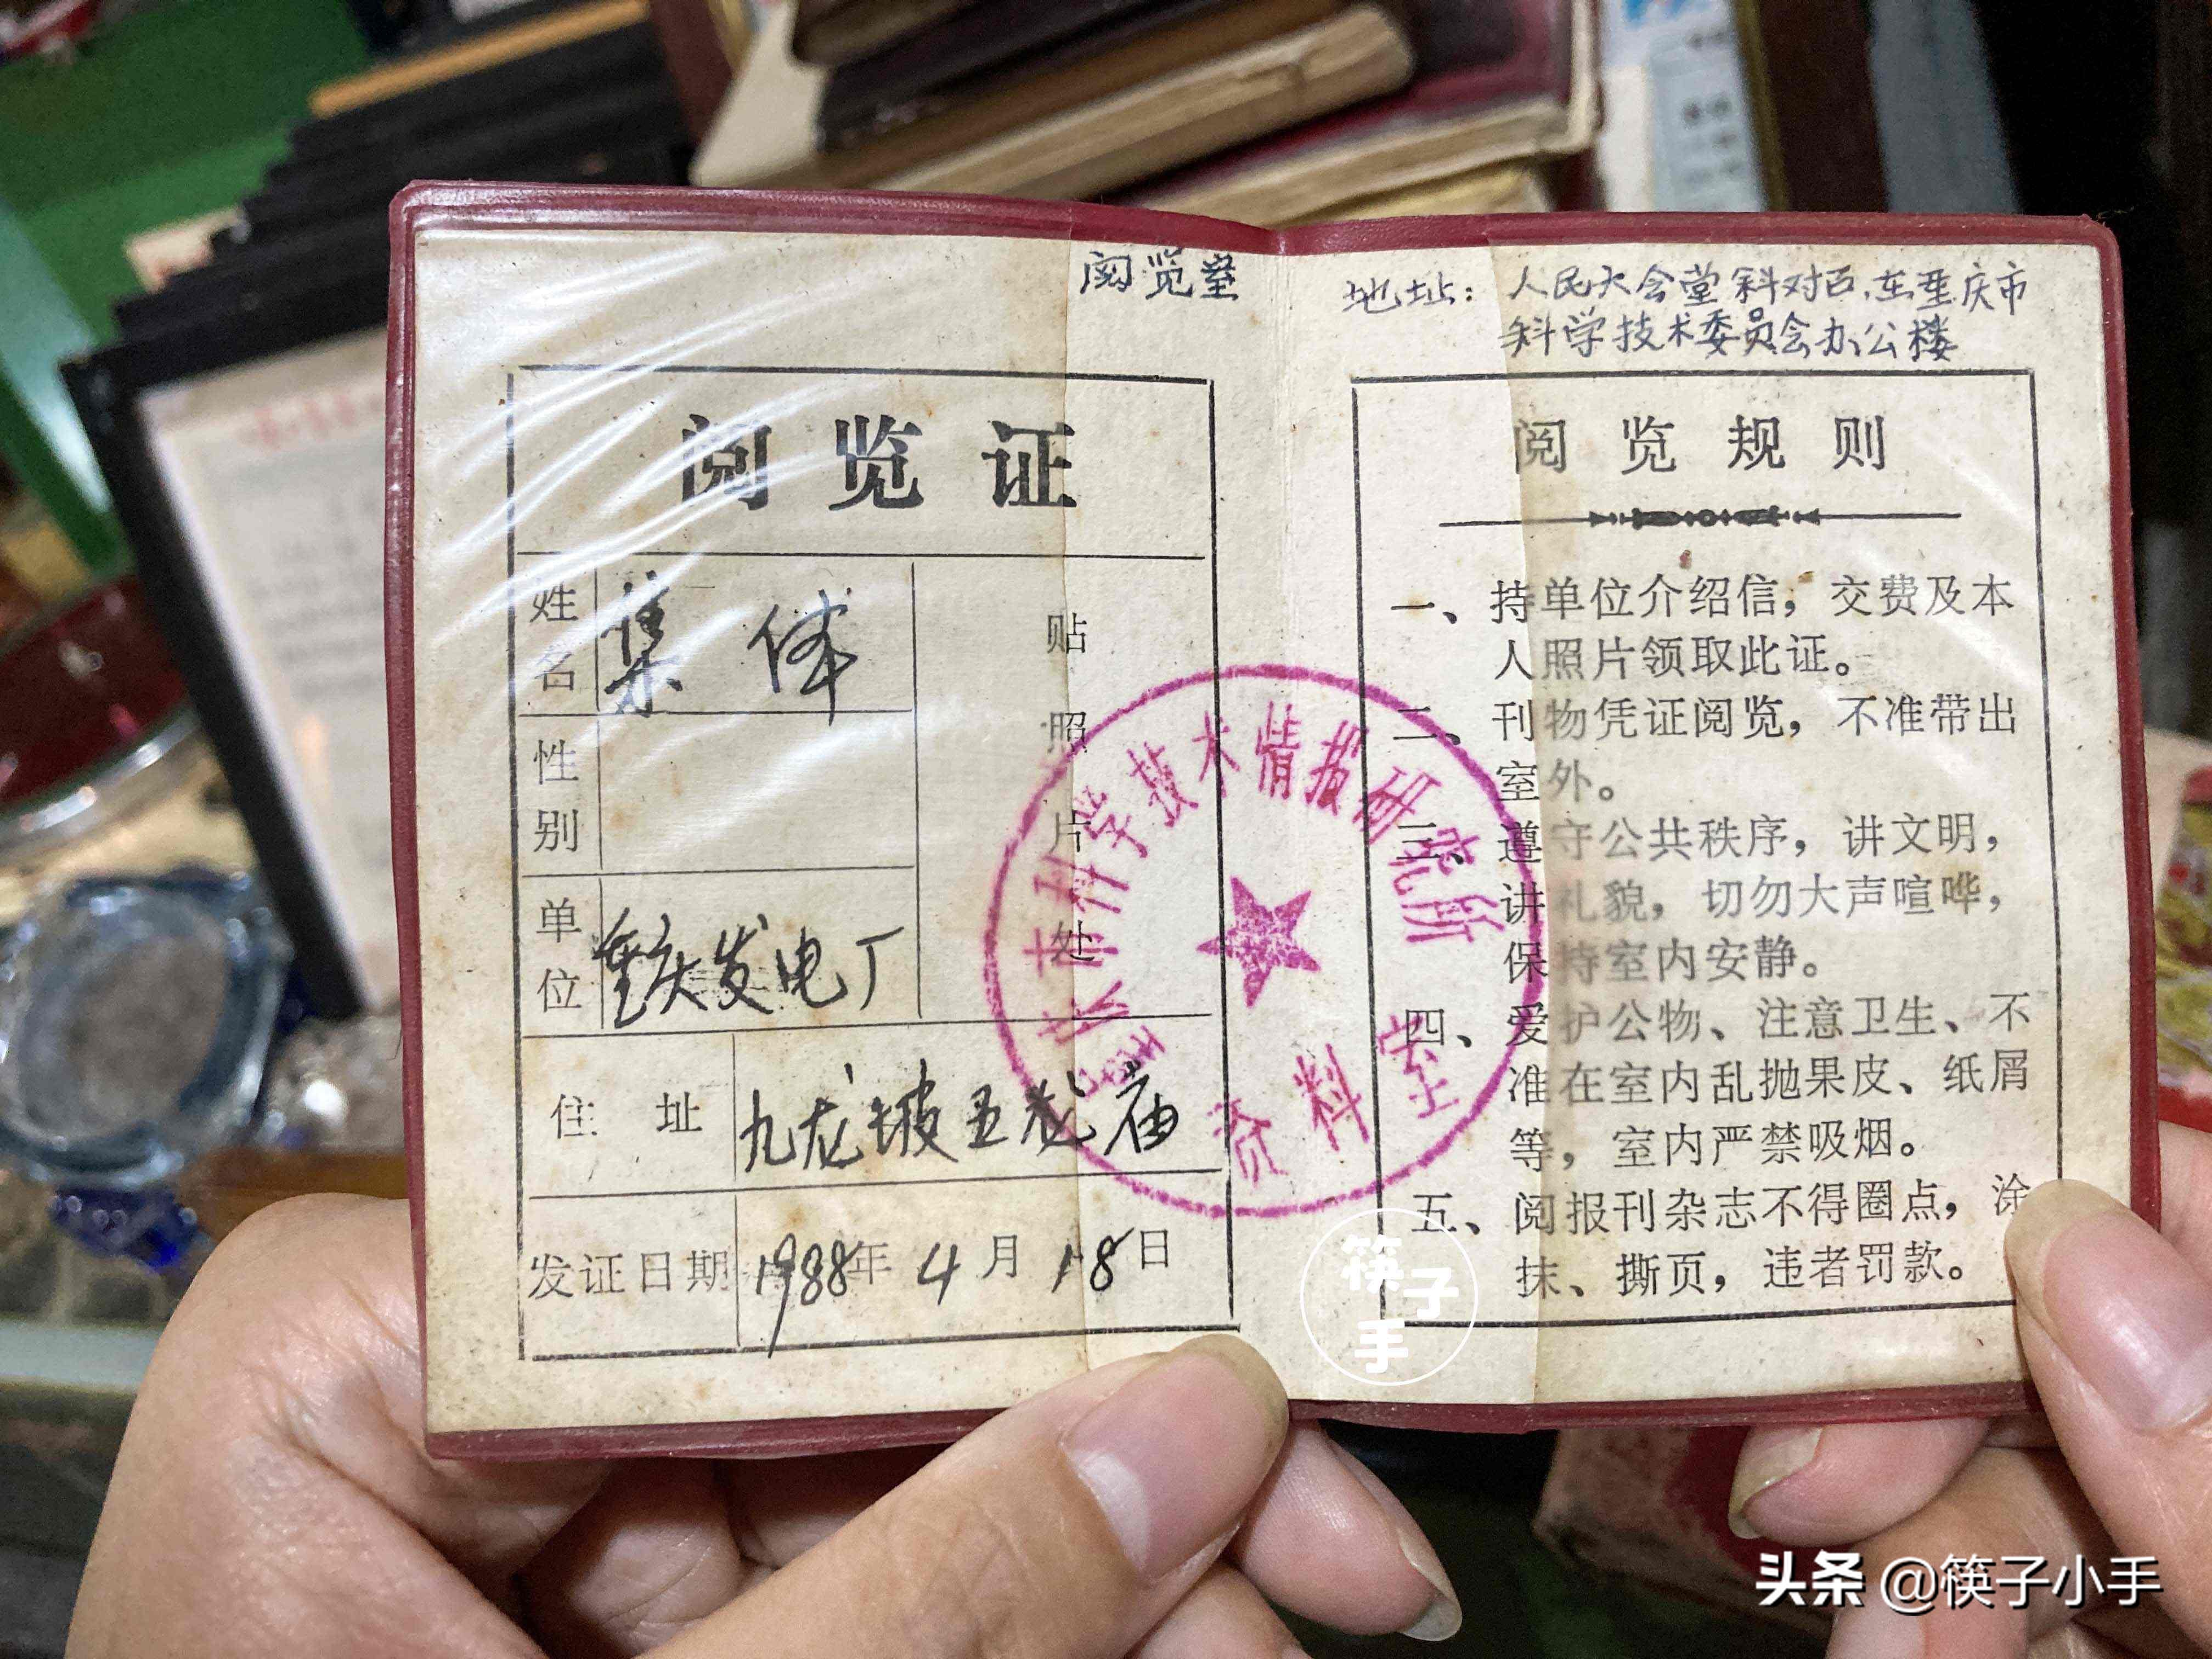 阅览室
地址：人民大会堂斜对面、在重庆市
科学技术委员会办公楼
阅览证
姓名 集体
性别
单位 重庆发电厂
贴照片处
住址 九龙坡五龙庙
发证日期 1988年4月18日
重庆市科学技术情报研究所
资料室
阅览规则
一、持单位介绍信，交费及本
人照片领取此证。
二、刊物凭证阅览，不准带出
室外。
三、遵守公共秩序，讲文明，
讲礼貌，切勿大声喧哗，
保持室内安静。
四、爱护公物、注意卫生、不
准在室内乱抛果皮、纸屑
等，室内严禁吸烟。
五、阅报刊杂志不得圈点，涂
抹、撕页，违者罚款。
筷子手
头条 @筷子小手